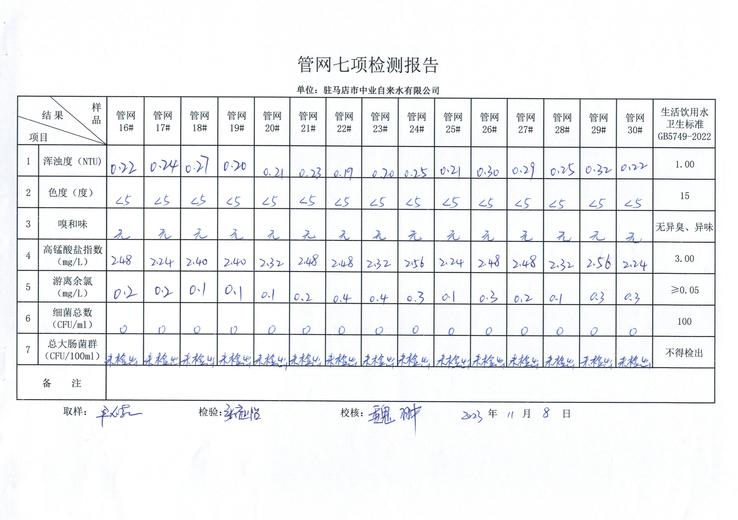 管网七项检测报告
单位：驻马店市中业自来水有限公司
结果 样品 项目 管网16# 管网17# 管网18# 管网19# 管网20# 管网21# 管网22# 管网23# 管网24# 管网25# 管网26# 管网27# 管网28# 管网29# 管网30# 生活饮用水卫生标准GB5749-2022
1 浑浊度（NTU) 0.22 0.24 0.27 0.20 0.21 0.23 0.19 0.20 0.25 0.21 0.30 0.29 0.25 0.32 0.22 1.00
2 色度（度） <5 <5 <5 <5 <5 <5 <5 <5 <5 <5 <5 <5 <5 <5 <5 15
3 嗅和味 无 无 无 无 无 无 无 无 无 无 无 无 无 无 无 无异臭、异味
4 高锰酸盐指数（mg/L） 2.48 2.24 2.40 2.40 2.32 2.48 2.48 2.32 2.56 2.24 2.48 2.48 2.32 2.56 2.24 3.00
5 游离余氯（mg/L） 0.2 0.2 0.1 0.1 0.1 0.2 0.4 0.4 0.3 0.1 0.3 0.2 0.1 0.3 0.3 ≥0.05
6 细菌总数（CFU/ml） 0 0 0 0 0 0 0 0 0 0 0 0 0 0 0 100
7 总大肠菌群（CFU/100ml） 未检出 未检出 未检出 未检出 未检出 未检出 未检出 未检出 未检出 未检出 未检出 未检出 未检出 未检出 未检出 不得检出
备 注
取样： 检验： 校核：魏翀 2023 年 11 月 8 日